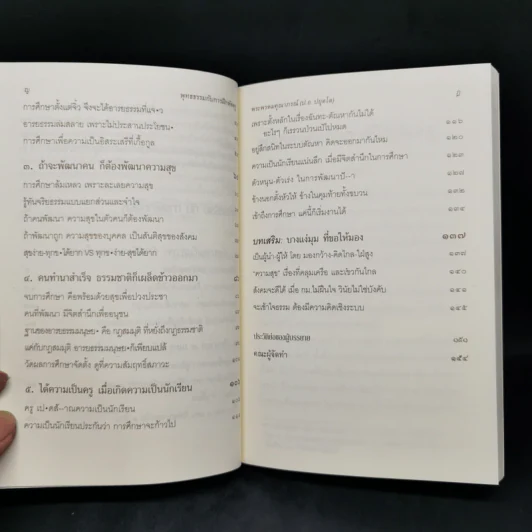 ญ
พุทธธรรมกับการฝึกฝน
การศึกษาตั้งแต่จิ๋ว จึงจะได้อารยธรรมที่แจ่ว
อารยธรรมล่มสลาย เพราะไม่ประสานประโยชน์
การศึกษาเพื่อความเป็นอิสระเสรีที่เกื้อกูล
๓. ถ้าจะพัฒนาคน ก็ต้องพัฒนาความสุข
การศึกษาล้มเหลว เพราะละเลยความสุข
รู้ทันจริยธรรมแบบแยกส่วนและจำใจ
ถ้าคนพัฒนา ความสุขในตัวคนก็ต้องพัฒนา
ถ้าพัฒนาถูก ความสุขของบุคคล เป็นสันติสุขของสังคม
สุขง่าย-ทุกข์ได้ยาก VS ทุกข์ง่าย-สุขได้ยาก
๔. คนทำนาสำเร็จ ธรรมชาติก็ผลิตข้าวออกมา
จบการศึกษา คือพร้อมด้วยสุขเพื่อปวงประชา
คนที่พัฒนา มีจิตสำนึกเพื่ออนุชน
ฐานของอารยธรรมมนุษย์ คือ กฎสมมุติ ที่หยั่งถึงกฎธรรมชาติ
แต่กับกฎสมมุติ อารยธรรมมนุษย์ก็เพียบแปล้
วัดผลการศึกษาจัดตั้ง ดูที่ความสัมฤทธิ์สภาวะ
๕. ได้ความเป็นครู เมื่อเกิดความเป็นนักเรียน
ความเป็นนักเรียนประกันว่า การศึกษาจะก้าวไป
พระพรหมคุณาภรณ์ (ป. อ. ปยุตฺโต)
เพราะตั้งหลักในเรื่องฉันทะ-ตัณหากันไม่ได้
อะไรๆ ก็เรรวนป่วนแปไปหมด ๑๑๖
อยู่ลึกสนิทในระบบตัณหา คิดจะออกมากันไหม ๑๒๐
ความเป็นนักเรียนแน่นลึก เมื่อมีจิตสำนึกในการศึกษา ๑๒๓
ตัวหนุน-ตัวเร่ง ในการพัฒนา
ช้างนอกลั้งหัวให้ ช้างในคุมท้ายทั้งขบวน ๑๓๒
เข้าถึงการศึกษา แค่นี้ก็เริ่มงานได้ ๑๓๔
บทเสริม: บางแง่มุม ที่ขอให้มอง ๑๓๗
เป็นผู้นำ-ผู้ให้ โดย มองกว้าง-คิดไกล-ใฝ่สูง
"ความสุข" เรื่องที่คลุมเครือ และเขวกันไกล ๑๔๐
สังคมจะดีได้ เมื่อ กม.ไม่ฝืนใจ วินัยไม่ใช่บังคับ
จะเข้าใจธรรม ต้องมีความคิดเชิงระบบ ๑๔๕
ประวัติย่อของผู้บรรยาย
คณะผู้จัดทำ ๑๕๔